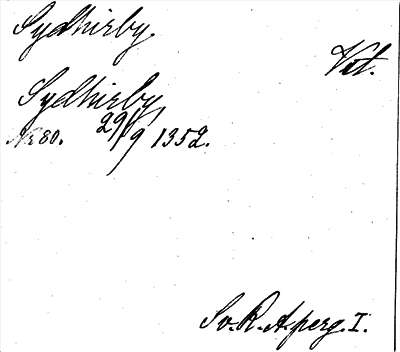 Sydhirby.
Vet.
Sydhirby
No 80. 29/9 1352.
Sv. R. Aperg. I.